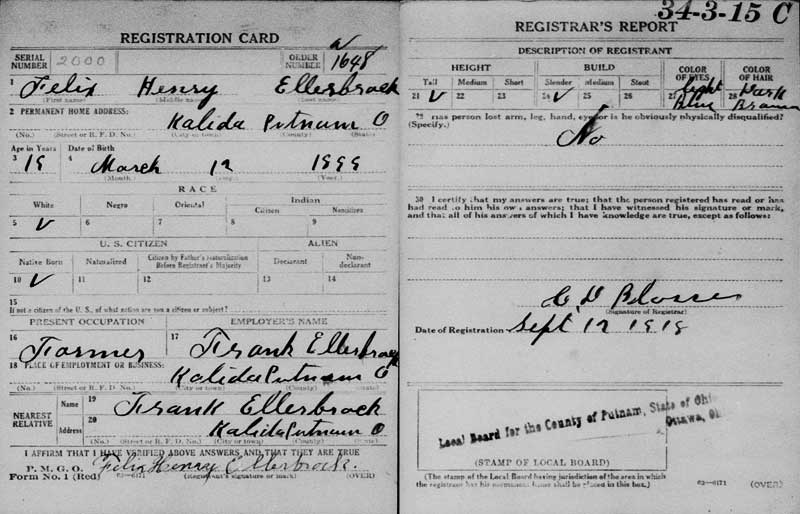 REGISTRATION CARD
SERIAL NUMBER 2000 ORDER NUMBER 1648
1 Felix Henry Ellerbrock
(First name) (Middle name) (Last name)
2 PERMANENT HOME ADDRESS:
Kalida Putnam O
(No.) (Street or R. F. D. No.) (City or town) (County) (State)
Age in Years Date of Birth
3 19 4 March 12 1899
(Month) (Day) (Year)
RACE
White Negro Oriental Indian
Citizen Noncitizen
5 V 6 7 8 9
U. S. CITIZEN ALIEN
Native Born Naturalized Citizen by Father's Naturalization Before Registrant's Majority Declarant Non-declarant
10 V 11 12 13 14
15
If not a citizen of the U. S., of what nation are you a citizen or subject?
PRESENT OCCUPATION EMPLOYER'S NAME
16 Farmer 17 Frank Ellerbrock
18 PLACE OF EMPLOYMENT OR BUSINESS:
Kalida Putnam O
(No.) (Street or R. F. D. No.) (City or town) (County) (State)
NEAREST RELATIVE
Name 19 Frank Ellerbrock
Address 20 Kalida Putnam O
(No.) (Street or R. F. D. No.) (City or town) (County) (State)
I AFFIRM THAT I HAVE VERIFIED ABOVE ANSWERS AND THAT THEY ARE TRUE
P. M. G. O.
Form No. 1 (Red) 03—6171 Felix Henry Ellerbrock
(Registrant's signature or mark) (OVER)
34-3-15 C
REGISTRAR'S REPORT
DESCRIPTION OF REGISTRANT
HEIGHT BUILD COLOR OF EYES COLOR OF HAIR
Tall Medium Short Slender Medium Stout
21 V 22 23 24 V 25 26 27 Light Blue 28 Dark Brown
29 Has person lost arm, leg, hand, eye, or is he obviously physically disqualified?
(Specify.) No
30 I certify that my answers are true; that the person registered has read or has
had read to him his own answers; that I have witnessed his signature or mark,
and that all of his answers of which I have knowledge are true, except as follows:
(Signature of Registrar)
Date of Registration Sept 12 1918
Local Board for the County of Putnam, State of Ohio
Ottawa,
(STAMP OF LOCAL BOARD)
(The stamp of the Local Board having jurisdiction of the area in which
the registrant has his permanent home shall be placed in this box.)
03—6171 (OVER)